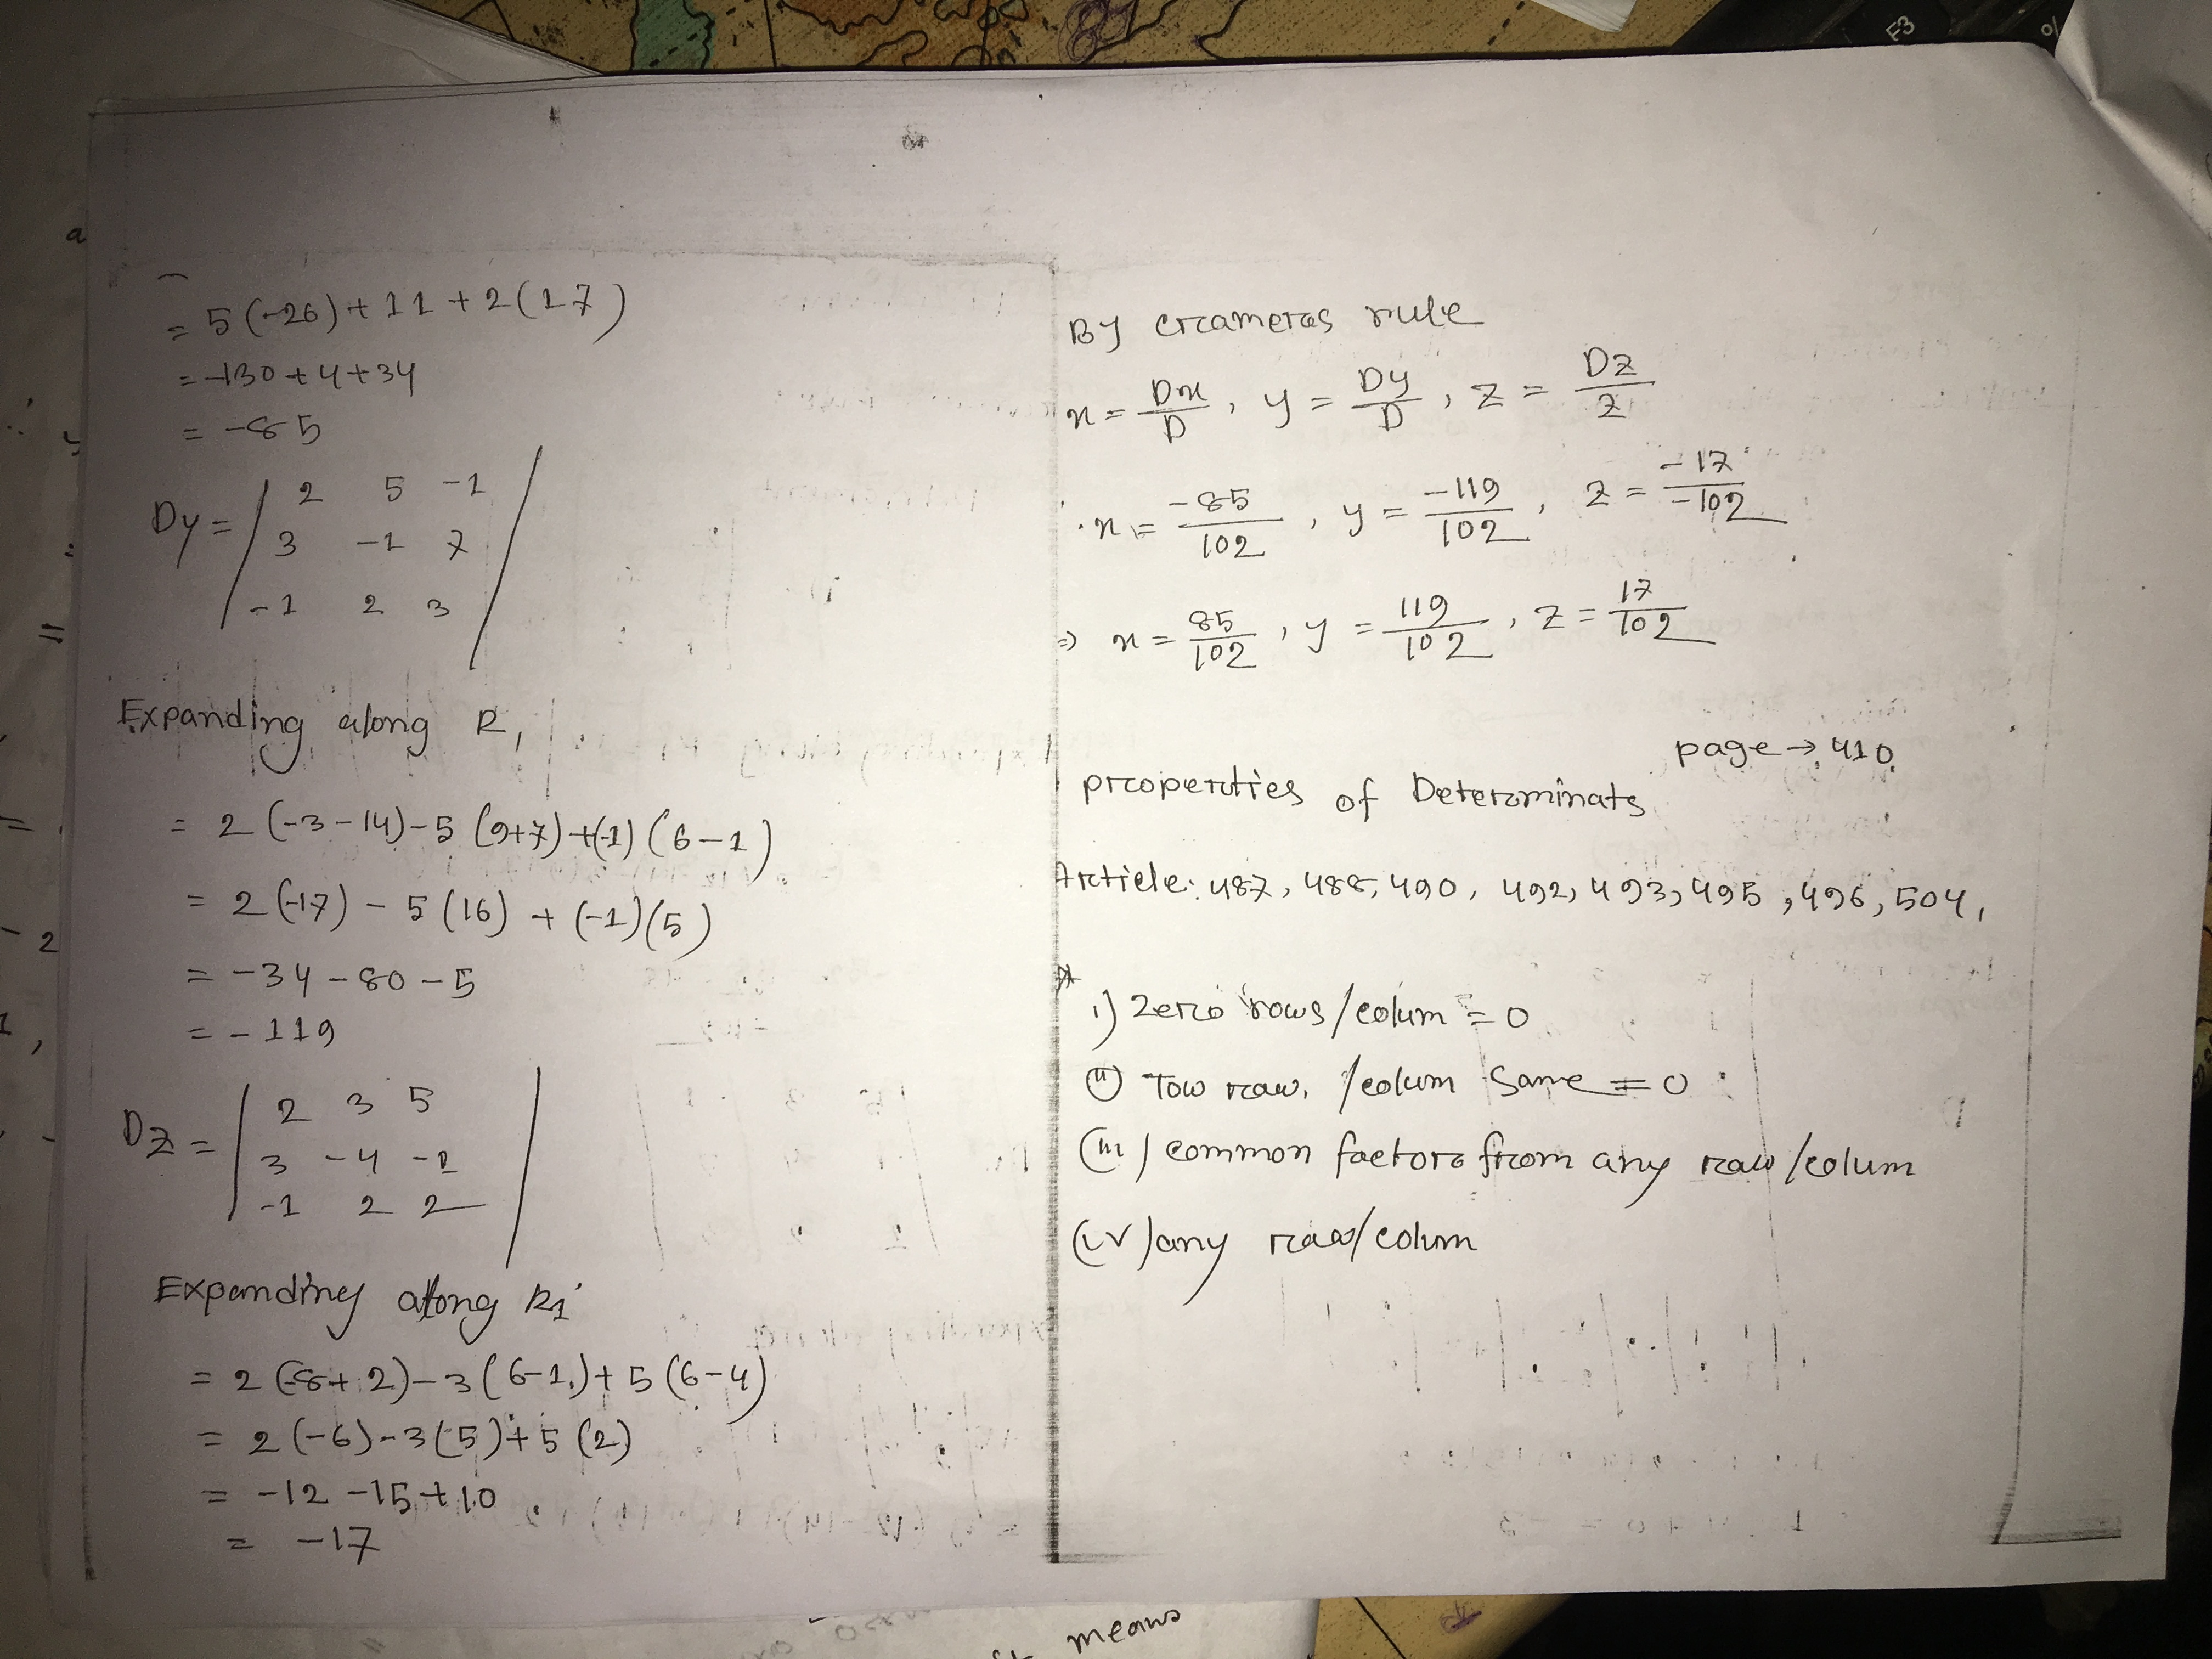 = 5(-26)+11+2(17)
= -130+4+34
= -85
Dy = | 2 5 -1 |
| 3 -1 7 |
| -1 2 3 |
Expanding along R1
= 2(-3-14)-5(9+7)+(-1)(6-1)
= 2(-17) - 5(16) + (-1)(5)
= -34-80-5
= -119
Dz = | 2 3 5 |
| 3 -4 -1 |
| -1 2 2 |
Expanding along R1
= 2(-8+2)-3(6-1)+5(6-4)
= 2(-6)-3(5)+5(2)
= -12-15+10
= -17
By crameras rule
x = Dx/D, y = Dy/D, z = Dz/z
x = -85/102, y = -119/102, z = -17/-102
⇒ x = 85/102, y = 119/102, z = 17/102
page → 410
properties of Determinats
Article: 487, 488, 490, 492, 493, 495, 496, 504,
i) Zero rows/colum = 0
(ii) Tow raw, /colum Same = 0
(iii) common factors from any raw/colum
(iv) any raw/colum
means
F3